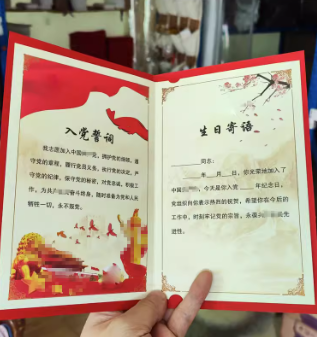 入党誓词
我志愿加入中国 党，拥护党的纲领，遵
守党的章程，履行党员义务，执行党的决定，严
守党的纪律，保守党的秘密，对党忠诚，积极工
作，为共 奋斗终身，随时准备为党和人民
牺牲一切，永不叛党。
生日寄语
同志：
年 月 日，你光荣地加入了
中国 ，今天是你入党 年纪念日，
党组织向你表示热烈的祝贺，希望你在今后的
工作中，时刻牢记党的宗旨，永葆
先进性。